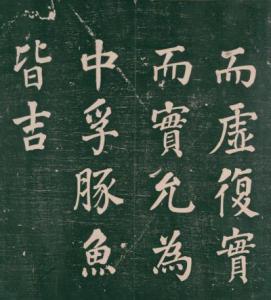 而虛復實
而實允為
中孚豚魚
皆吉